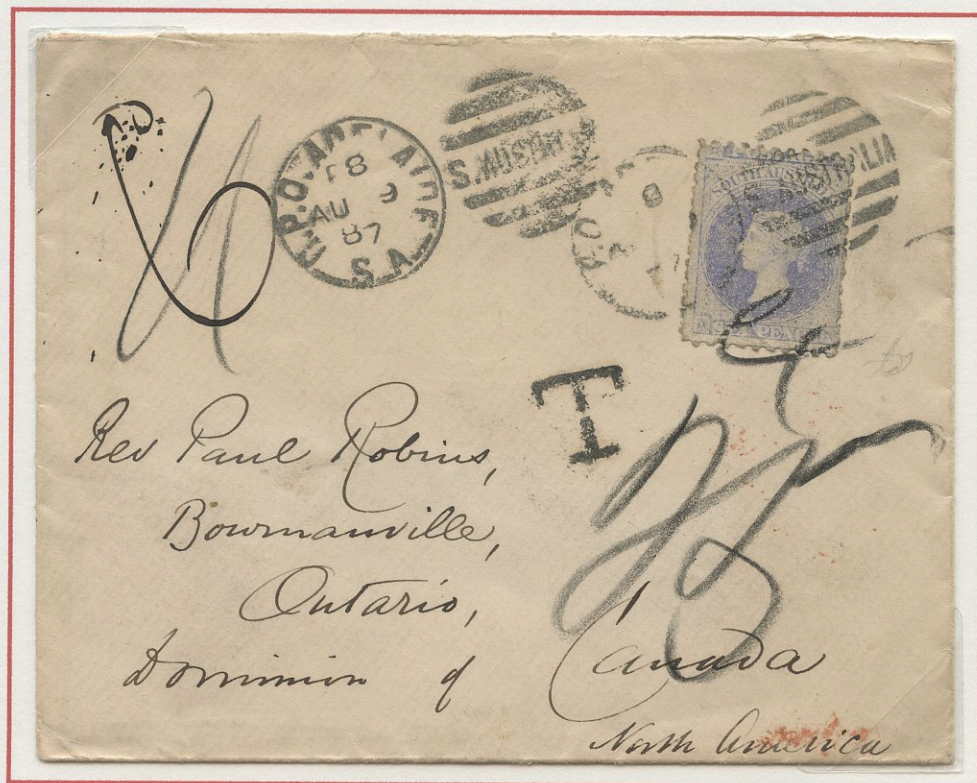 G.P.O. ADELAIDE
F8
AU 9
87
S.A
S.AUSTR
SOUTH AUSTRALIA
SIX PENCE
T
Rev Paul Robins,
Bowmanville,
Ontario,
Dominion of Canada
North America